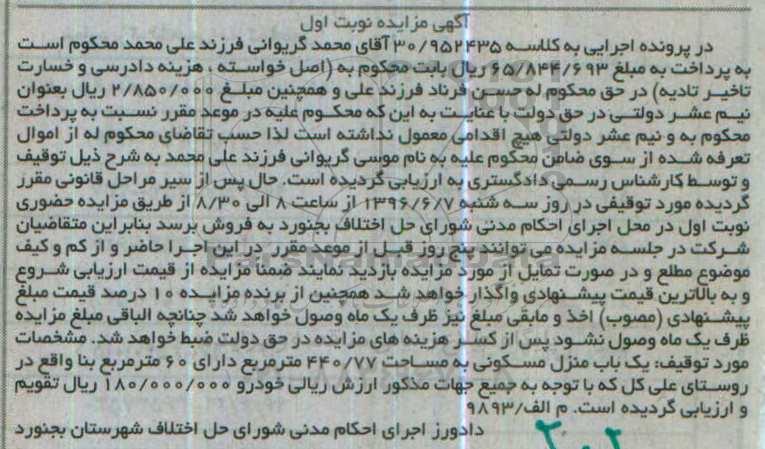 آگهی مزایده نوبت اول
در پرونده اجرایی به کلاسه ۳۰/۹۵۲۴۳۵ آقای محمد گریوانی فرزند علی محمد محکوم است
به پرداخت به مبلغ ۶۵/۸۴۴/۶۹۳ ریال بابت محکوم به (اصل خواسته ، هزینه دادرسی و خسارت
تاخیر تادیه) در حق محکوم له حسن فرناد فرزند علی و همچنین مبلغ ۲/۸۵۰/۰۰۰ ریال بعنوان
نیم عشر دولتی در حق دولت با عنایت به این که محکوم علیه در موعد مقرر نسبت به پرداخت
محکوم به و نیم عشر دولتی هیچ اقدامی معمول نداشته است لذا حسب تقاضای محکوم له از اموال
تعرفه شده از سوی ضامن محکوم علیه به نام موسی گریوانی فرزند علی محمد به شرح ذیل توقیف
و توسط کارشناس رسمی دادگستری به ارزیابی گردیده است. حال پس از سیر مراحل قانونی مقرر
گردیده مورد توقیفی در روز سه شنبه ۱۳۹۶/۶/۷ از ساعت ۸ الی ۸/۳۰ از طریق مزایده حضوری
نوبت اول در محل اجرای احکام مدنی شورای حل اختلاف بجنورد به فروش برسد بنابراین متقاضیان
شرکت در جلسه مزایده می توانند پنج روز قبل از موعد مقرر در این اجرا حاضر و از کم و کیف
موضوع مطلع و در صورت تمایل از مورد مزایده بازدید نمایند ضمنا مزایده از قیمت ارزیابی شروع
و به بالاترین قیمت پیشنهادی واگذار خواهد شد همچنین از برنده مزایده ۱۰ درصد قیمت مبلغ
پیشنهادی (مصوب) اخذ و مابقی مبلغ نیز ظرف یک ماه وصول خواهد شد چنانچه الباقی مبلغ مزایده
ظرف یک ماه وصول نشود پس از کسر هزینه های مزایده در حق دولت ضبط خواهد شد. مشخصات
مورد توقیف: یک باب منزل مسکونی به مساحت ۴۴۰/۷۷ مترمربع دارای ۶۰ مترمربع بنا واقع در
روستای علی کل که با توجه به جمیع جهات مذکور ارزش ریالی خودرو ۱۸۰/۰۰۰/۰۰۰ ریال تقویم
و ارزیابی گردیده است. م الف/۹۸۹۳
دادورز اجرای احکام مدنی شورای حل اختلاف شهرستان بجنورد